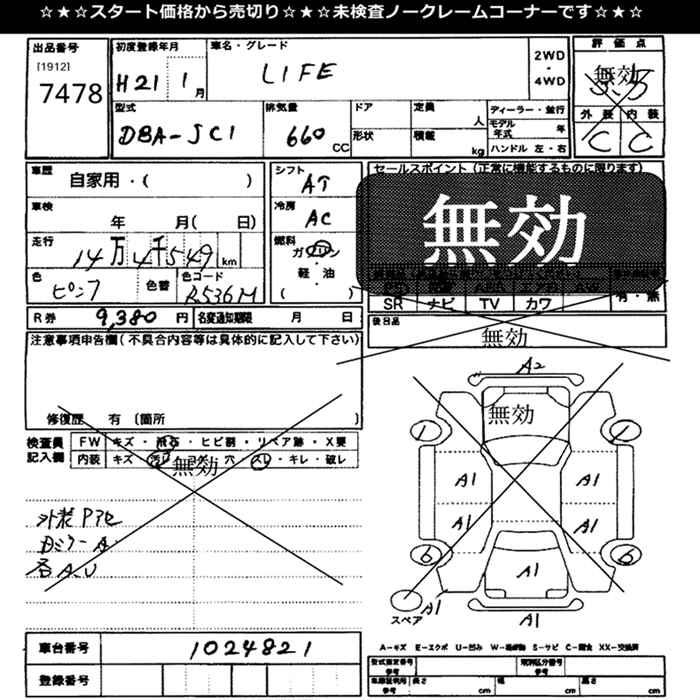 ☆★☆スタート価格から売切り☆★☆未検査ノークレームコーナーです☆★☆
出品番号
[1912]
7478
初度登録年月
H21 1月
車名・グレード
LIFE
2WD
・
4WD
評価点
無効
外装 内装
C C
型式
DBA-JC1
排気量
660 CC
ドア
形状
定員 人
積載 kg
ディーラー・並行
モデル年式 年
ハンドル 左・右
車歴
自家用・( )
車検
年 月( 日)
走行
14万4千549km
色
ピンク
色替
色コード
R536M
シフト
AT
冷房
AC
燃料
ガソリン
・
軽油
( )
セールスポイント(正常に機能するものに限ります)
無効
SR ナビ TV カワ
有・無
R券 9,380円
名変通知期限 月 日
後日品
無効
注意事項申告欄(不具合内容等は具体的に記入して下さい)
修復歴 有 (箇所 )
検査員記入欄
FW キズ・飛石・ヒビ割・リペア跡・X要
内装 キズ・汚れ・コゲ・穴・スレ・キレ・破レ
無効
外装 Pアセ
Dミラー A
各A.U
A2
無効
1
A1
A1
A1
A1
6
6
A1
スペア
A1
A1
車台番号
1024821
登録番号
A-キズ E-エクボ U-凹み W-補修跡 S-サビ C-腐食 XX-交換済
型式指定番号
参考
類別区分番号
参考
車検証判明
参考
長さ cm
幅 cm
高さ cm